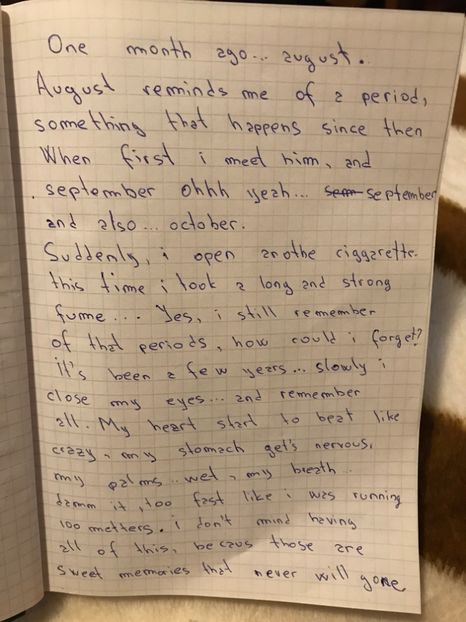 One month ago... august.
August reminds me of a period,
something that happens since then
When first i meet him, and
september ohhh yeah... september
and also... october.
Suddenly, i open anothe ciggarette.
this time i took a long and strong
fume... Yes, i still remember
of that periods, how could i forget?
it's been a few years... slowly i
close my eyes... and remember
all. My heart start to beat like
crazy, my stomach get's nervous,
my palms.. wet, my breath..
damm it, too fast like i was running
100 metters. i don't mind having
all of this, becaus those are
sweet memories that never will gone